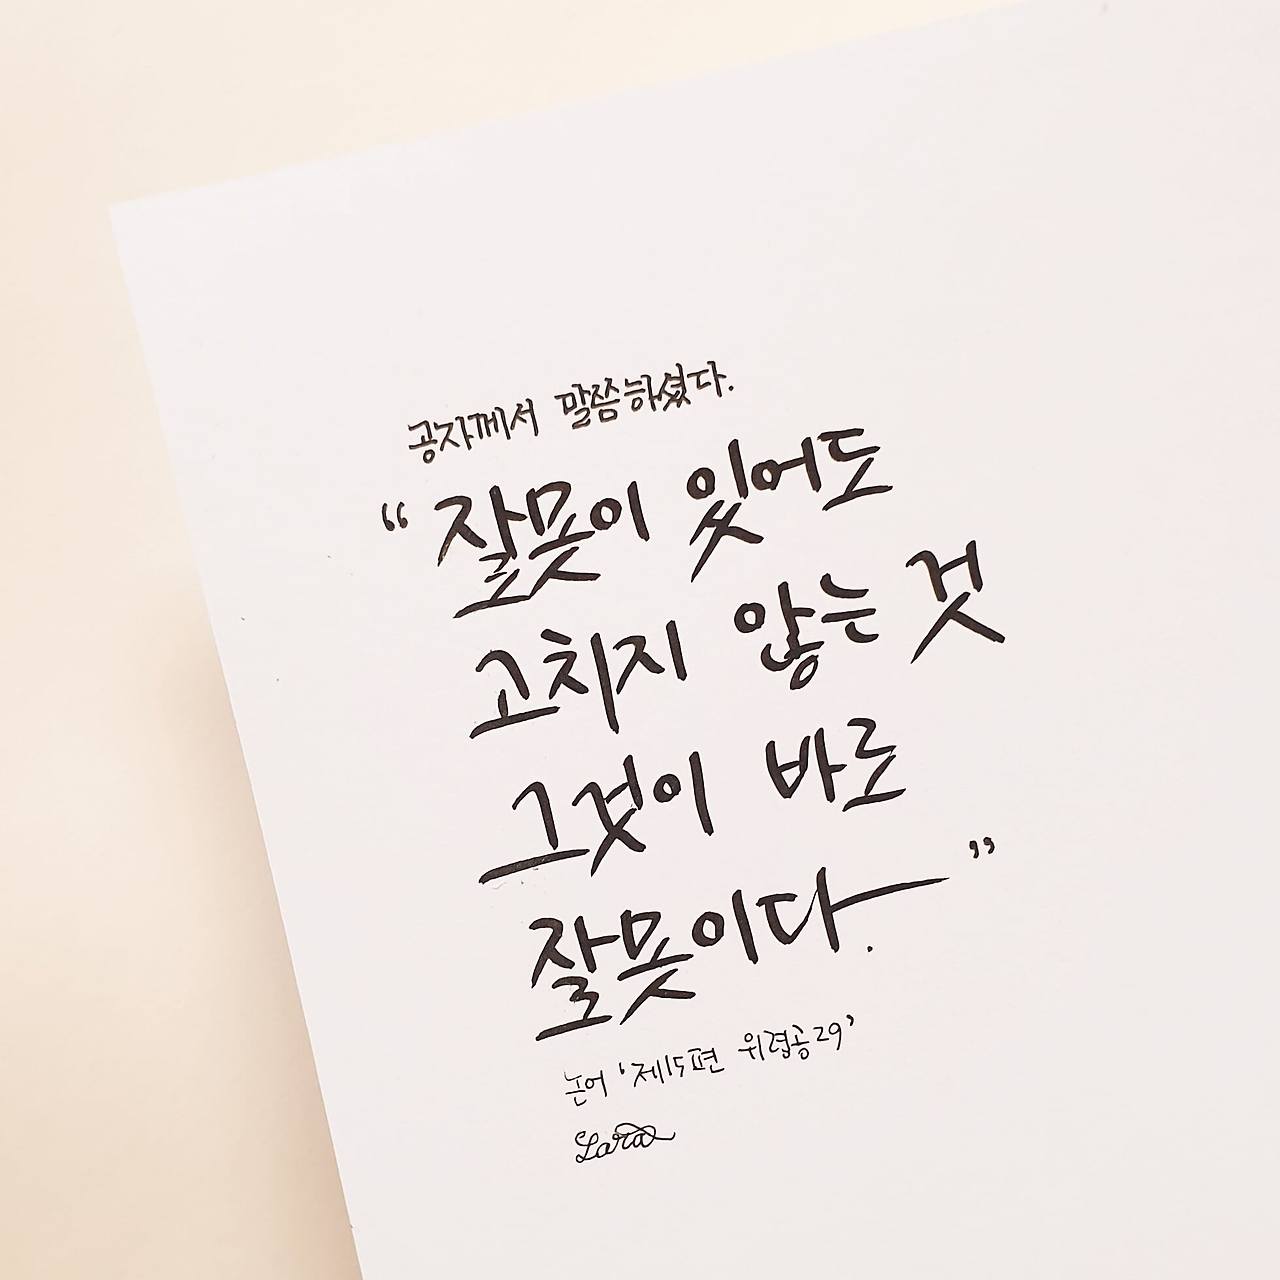 공자께서 말씀하셨다.
“잘못이 있어도
고치지 않는 것
그것이 바로
잘못이다.”
논어 ‘제15편 위령공29’
Lara